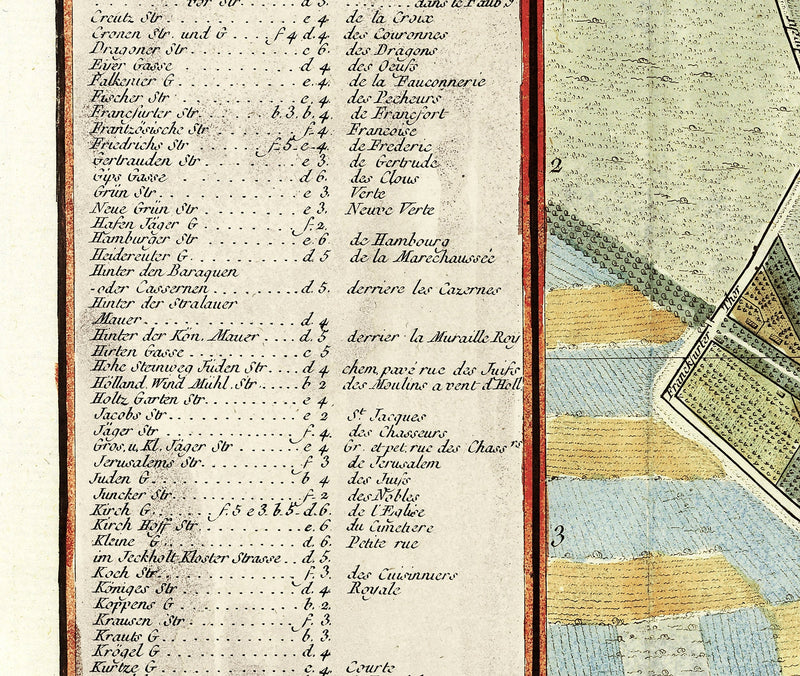 vor Str. d 3. dans le Faub
Creutz Str e 4 de la Croix
Cronen Str. und G f 4 d.4. des Couronnes
Dragoner Str. e 6. des Dragons
Eyer Gasse d 4 des Oeufs
Falkenier G e.4. de la Fauconnerie
Fischer Str e.4. des Pecheurs
Francfürter Str. b.3.b.4. de Francfort
Frantzösische Str f.4. Francoise
Friedrichs Str f.5.e-4. de Frederic
Gertrauden Str. e 3. de Gertrude
Gÿps Gasse d 6. des Clous
Grün Str. e 3. Verte
Neue Grün Str e 3. Neuve Verte
Hafen Jäger G f.2.
Hamburger Str e.6 de Hambourg
Heidereuter G d.5 de la Marechaussée
Hinter den Baraquen
-oder Cassernen d.5. derriere les Cazernes
Hinter der Stralauer
Mauer d 4
Hinter der Kön. Mauer d.5 derrier la Muraille Roy
Hirten Gasse c 5
Hohe Steinweg Jüden Str. d 4 chem pavé rue des Juifs
Holland Wind Mühl. Str. b 2 des Moulins a vent d'Holl
Holtz Garten Str. e 4.
Jacobs Str. e 2 St Jacques
Jäger Str f.4. des Chasseurs
Gros. u. Kl. Jäger Str e 4 Gr. et pet. rue des Chass rs
Jerusalems Str. f 3 de Jerusalem
Juden G b 4 des Juifs
Juncker Str. f.2 des Nobles
Kirch G. f.5 e 3. b.5-d.6. de l'Eglise
Kirch Hoff Str. e.6 du Cimetiere
Kleine G d.6. Petite rue
im Jeckholt Kloster Strasse d.5.
Koch Str. f.3. des Cuisinniers
Königes Str d.4 Royale
Koppens G b.2.
Krausen Str f.3.
Krauts G b.3.
Krögel G d.4
Kurtze G e.4. Courte
2
3
Franckfurter Thor